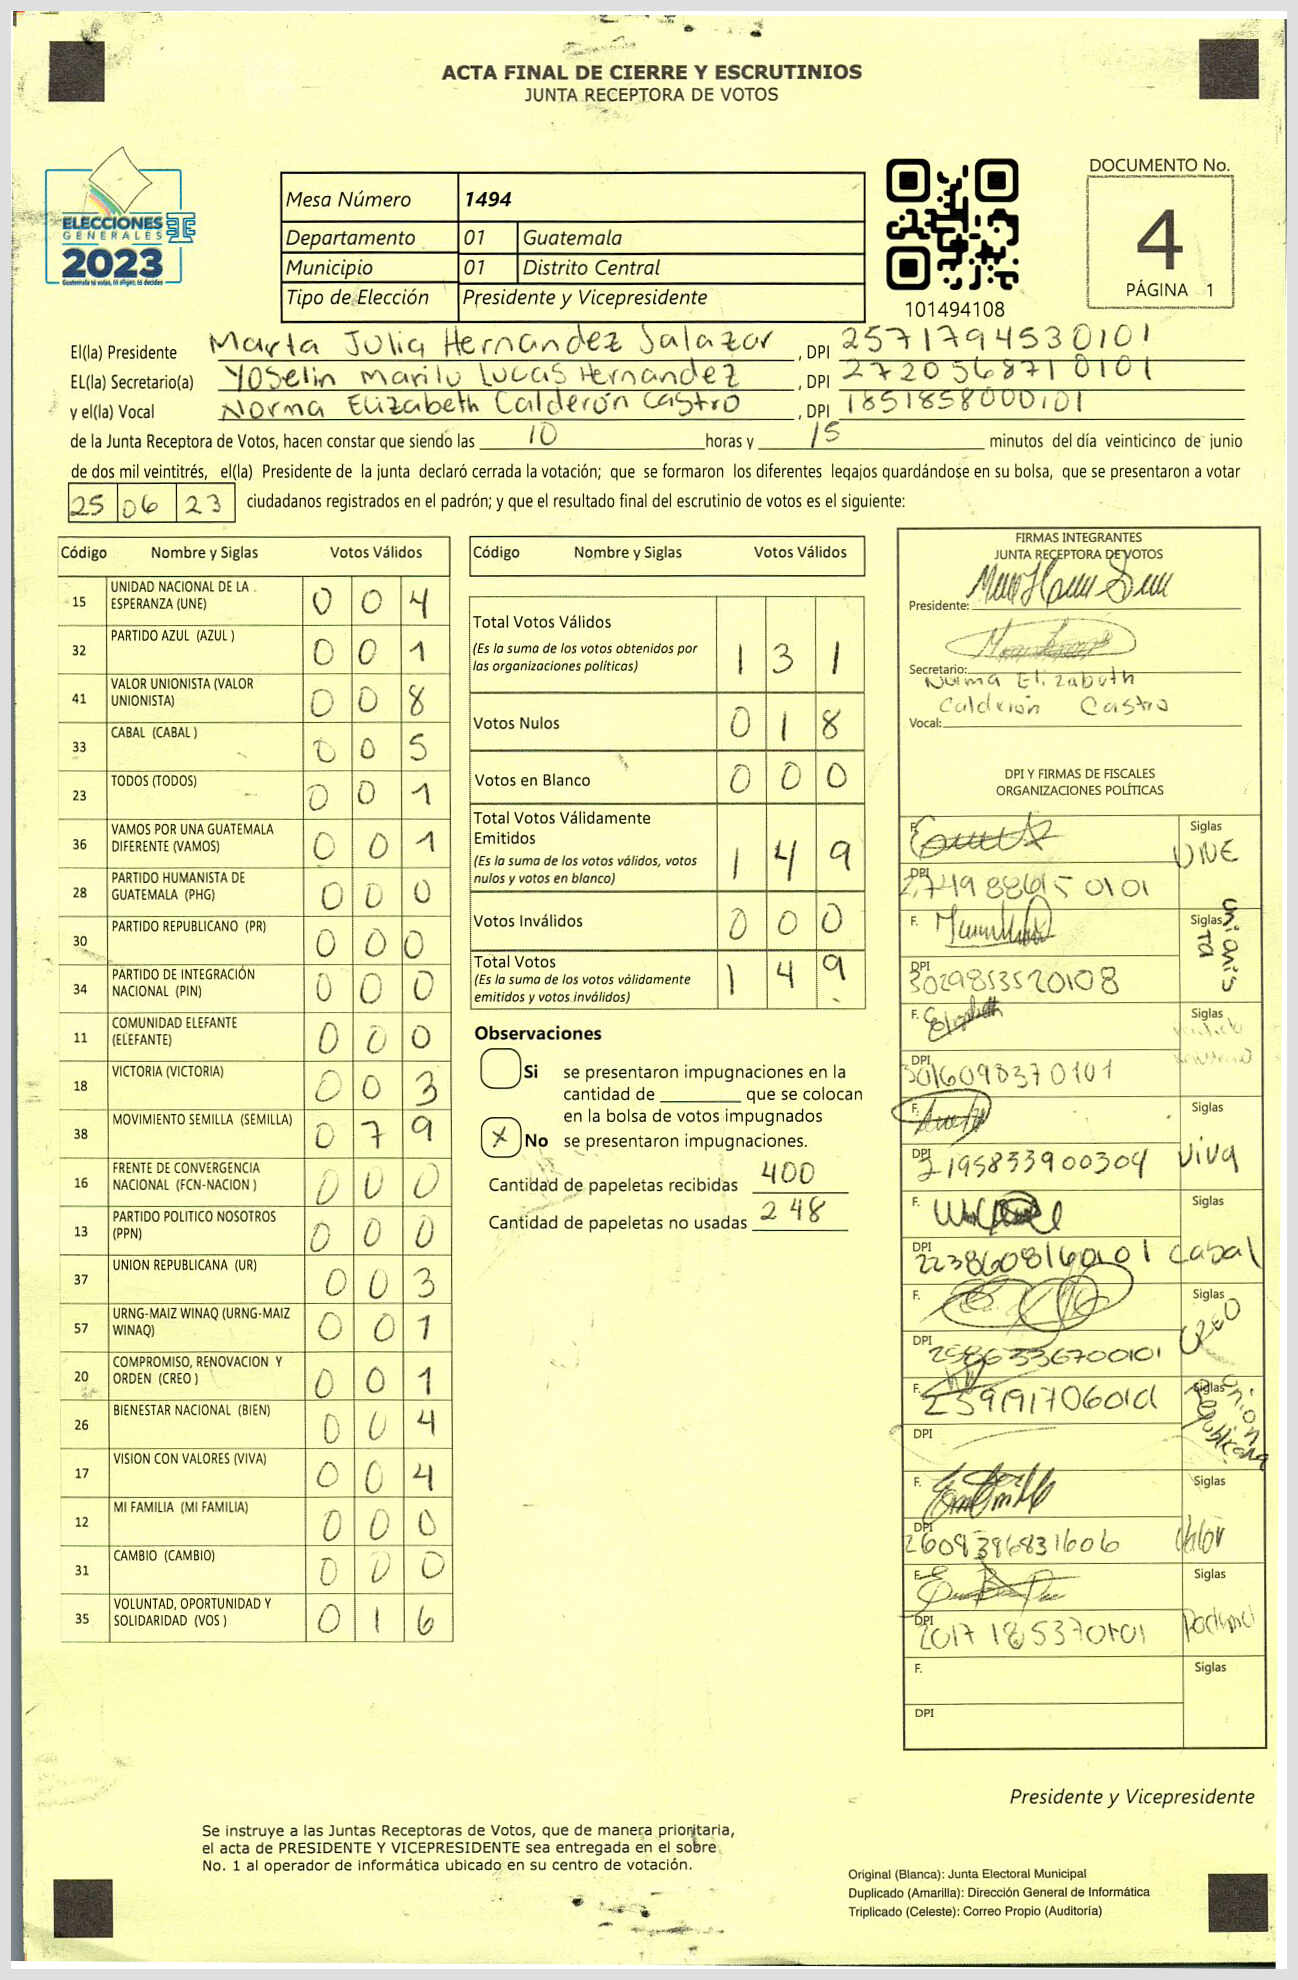 ACTA FINAL DE CIERRE Y ESCRUTINIOS
JUNTA RECEPTORA DE VOTOS
ELECCIONES
GENERALES
2023
Guatemala tú votas, tú eliges, tú decides
Mesa Número 1494
Departamento 01 Guatemala
Municipio 01 Distrito Central
Tipo de Elección Presidente y Vicepresidente
101494108
DOCUMENTO No.
4
PÁGINA 1
El(la) Presidente Marta Julia Hernandez Salazar, DPI 2571794530101
EL(la) Secretario(a) Yoselin Marilu Lucas Hernandez, DPI 2720568710101
y el(la) Vocal Norma Elizabeth Calderón Castro, DPI 1851858000101
de la Junta Receptora de Votos, hacen constar que siendo las 10 horas y 15 minutos del día veinticinco de junio
de dos mil veintitrés, el(la) Presidente de la junta declaró cerrada la votación; que se formaron los diferentes legajos guardándose en su bolsa, que se presentaron a votar
25 06 23 ciudadanos registrados en el padrón; y que el resultado final del escrutinio de votos es el siguiente:
Código Nombre y Siglas Votos Válidos
15 UNIDAD NACIONAL DE LA ESPERANZA (UNE) 0 0 4
32 PARTIDO AZUL (AZUL ) 0 0 1
41 VALOR UNIONISTA (VALOR UNIONISTA) 0 0 8
33 CABAL (CABAL ) 0 0 5
23 TODOS (TODOS) 0 0 1
36 VAMOS POR UNA GUATEMALA DIFERENTE (VAMOS) 0 0 1
28 PARTIDO HUMANISTA DE GUATEMALA (PHG) 0 0 0
30 PARTIDO REPUBLICANO (PR) 0 0 0
34 PARTIDO DE INTEGRACIÓN NACIONAL (PIN) 0 0 0
11 COMUNIDAD ELEFANTE (ELEFANTE) 0 0 0
18 VICTORIA (VICTORIA) 0 0 3
38 MOVIMIENTO SEMILLA (SEMILLA) 0 7 9
16 FRENTE DE CONVERGENCIA NACIONAL (FCN-NACION ) 0 0 0
13 PARTIDO POLITICO NOSOTROS (PPN) 0 0 0
37 UNION REPUBLICANA (UR) 0 0 3
57 URNG-MAIZ WINAQ (URNG-MAIZ WINAQ) 0 0 1
20 COMPROMISO, RENOVACION Y ORDEN (CREO ) 0 0 1
26 BIENESTAR NACIONAL (BIEN) 0 0 4
17 VISION CON VALORES (VIVA) 0 0 4
12 MI FAMILIA (MI FAMILIA) 0 0 0
31 CAMBIO (CAMBIO) 0 0 0
35 VOLUNTAD, OPORTUNIDAD Y SOLIDARIDAD (VOS ) 0 1 6
Código Nombre y Siglas Votos Válidos
Total Votos Válidos 1 3 1
(Es la suma de los votos obtenidos por
las organizaciones políticas)
Votos Nulos 0 1 8
Votos en Blanco 0 0 0
Total Votos Válidamente
Emitidos 1 4 9
(Es la suma de los votos válidos, votos
nulos y votos en blanco)
Votos Inválidos 0 0 0
Total Votos 1 4 9
(Es la suma de los votos válidamente
emitidos y votos inválidos)
Observaciones
Si se presentaron impugnaciones en la
cantidad de ________ que se colocan
en la bolsa de votos impugnados
X No se presentaron impugnaciones.
Cantidad de papeletas recibidas 400
Cantidad de papeletas no usadas 248
FIRMAS INTEGRANTES
JUNTA RECEPTORA DE VOTOS
Presidente:
Secretario:
Norma Elizabeth
Calderón Castro
Vocal:
DPI Y FIRMAS DE FISCALES
ORGANIZACIONES POLÍTICAS
F. Siglas UNE
DPI 2749886150101
F. Siglas Unionista
DPI 3029853520108
F. Elizabeth Siglas
DPI 3016098370101
F. Siglas Viva
DPI 2195833900304
F. Siglas Cabal
DPI 2238608160101
F. Siglas CREO
DPI 2586336700101
F. Siglas Union Republicana
DPI
F. Siglas Valor
DPI 2609396831606
F. Siglas
DPI 2017185370101
F. Siglas
DPI
Presidente y Vicepresidente
Se instruye a las Juntas Receptoras de Votos, que de manera prioritaria,
el acta de PRESIDENTE Y VICEPRESIDENTE sea entregada en el sobre
No. 1 al operador de informática ubicado en su centro de votación.
Original (Blanca): Junta Electoral Municipal
Duplicado (Amarilla): Dirección General de Informática
Triplicado (Celeste): Correo Propio (Auditoría)